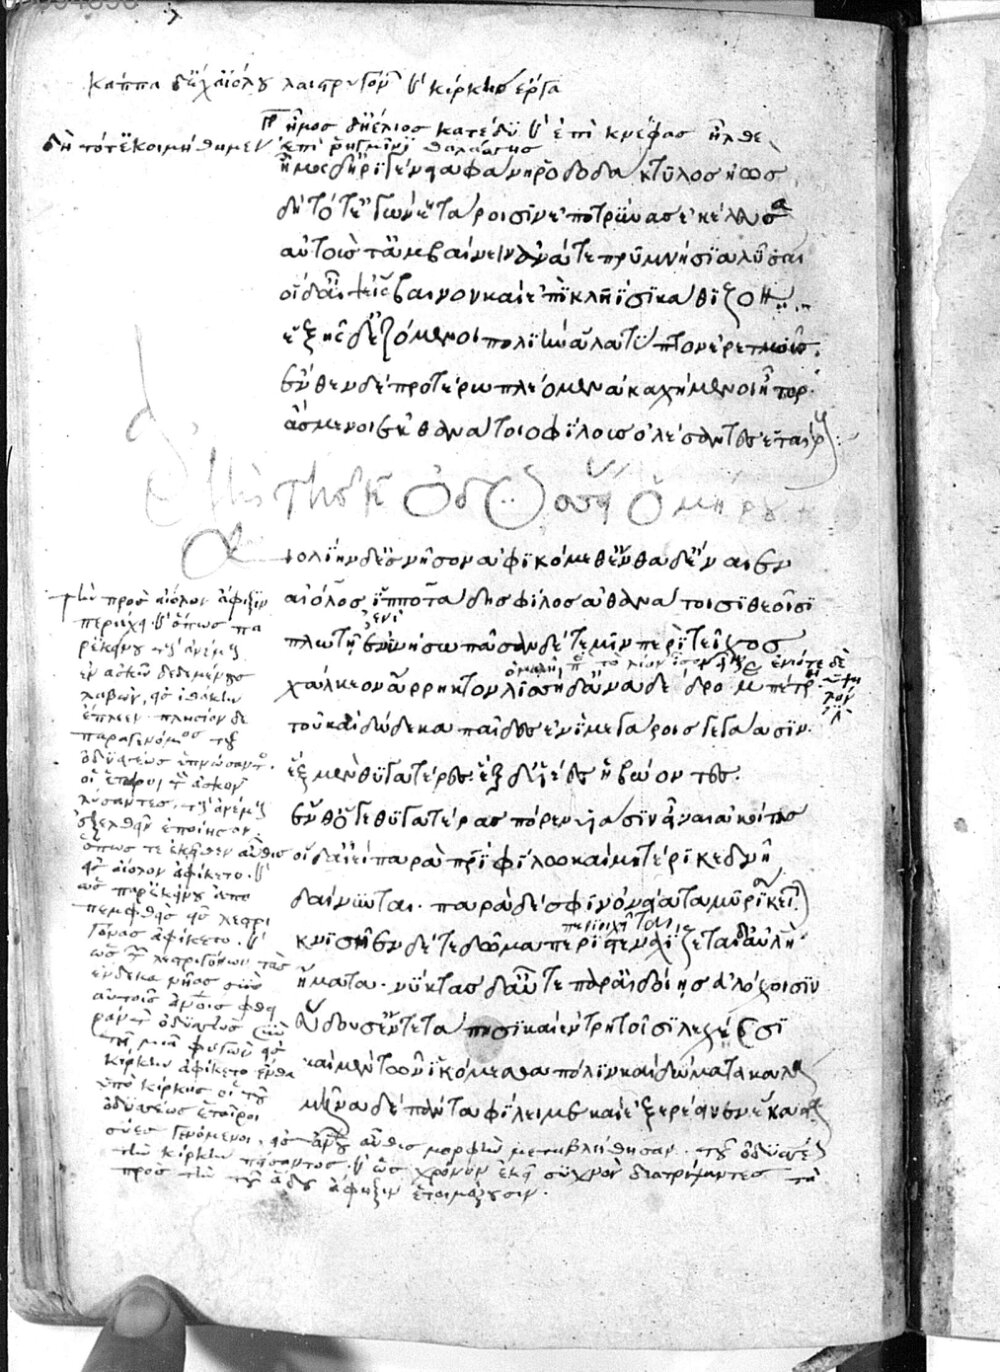 κάππα δ' αἰόλου λαιστρυγόν κίρκης ἔργα
ἦμος δ' ἠέλιος κατέδυ καὶ ἐπὶ κνέφας ἦλθε
δὴ τότε κοιμήθημεν ἐπὶ ῥηγμῖνι θαλάσσης
ἦμος δ' ἠριγένεια φάνη ῥοδοδάκτυλος ἠὼς
δὴ τότ' ἐγὼν ἑτάροισιν ἐποτρύνας ἐκέλευσα
αὐτούς τ' ἀμβαίνειν ἀνά τε πρυμνήσια λῦσαι
οἱ δ' αἶψ' εἴσβαινον καὶ ἐπὶ κληῗσι καθῖζον
ἑξῆς δ' ἑζόμενοι πολιὴν ἅλα τύπτον ἐρετμοῖς
ἔνθεν δὲ προτέρω πλέομεν ἀκαχήμενοι ἦτορ
ἄσμενοι ἐκ θανάτοιο φίλους ὀλέσαντες ἑταίρους
τῆς ὀδυσσ ὁμήρου
αἰολίην δ' ἐς νῆσον ἀφικόμεθ' ἔνθα δ' ἔναιεν
αἰόλος ἱπποτάδης φίλος ἀθανάτοισι θεοῖσι
πλωτῇ ἐνὶ νήσῳ πᾶσαν δέ τέ μιν πέρι τεῖχος
χάλκεον ἄρρηκτον λισσὴ δ' ἀναδέδρομε πέτρη
τοῦ καὶ δώδεκα παῖδες ἐνὶ μεγάροις γεγάασιν
ἓξ μὲν θυγατέρες ἓξ δ' υἱέες ἡβώοντες
ἔνθ' ὅγε θυγατέρας πόρεν υἱάσιν εἶναι ἀκοίτας
οἱ δ' αἰεὶ παρὰ πατρὶ φίλῳ καὶ μητέρι κεδνῇ
δαίνυνται παρὰ δέ σφιν ὀνείατα μυρία κεῖται
κνισῆεν δέ τε δῶμα περιστεναχίζεται αὐλῇ
ἤματα νύκτας δ' αὖτε παρ' αἰδοίῃς ἀλόχοισιν
εὕδουσ' ἔν τε τάπησι καὶ ἐν τρητοῖσι λεχέεσσι
καὶ μὲν τῶν ἱκόμεσθα πόλιν καὶ δώματα καλὰ
μῆνα δὲ πάντα φίλει με καὶ ἐξερέεινεν ἕκαστα
τὴν πρὸς αἰόλον ἄφιξιν
περιέχει καὶ ὅπως πα
ρ' ἐκείνου τοὺς ἀνέμους
ἐν ἀσκῷ δεδεμένους
λαβὼν πρὸς ἰθάκην
ἔπλεεν πλησίον δὲ
παραγινόμενος τῆς
ὀδυσσέως ὑπνώσαντος
οἱ ἕταροι τὸν ἀσκὸν
λύσαντες τοὺς ἀνέμους
ἐξελθεῖν ἐποίησαν
ὅπως τε ἐκεῖθεν αὖθις
πρὸς αἰόλον ἀφίκετο καὶ
ὡς παρ' ἐκείνου ἀπο
πεμφθεὶς πρὸς λεστρι
γόνας ἀφίκετο καὶ
ὡς τῶν λεστριγόνων τὰς
ἕνδεκα νῆας σὺν
αὐτοῖς ἀνδράσι φθει
ράντων ὀδυσσεὺς σὺν
τῇ μιᾷ φυγὼν πρὸς
κίρκην ἀφίκετο ἔνθα
ὑπὸ κίρκης οἱ τοῦ
ὀδυσσέως ἕταιροι
σύες γενόμενοι πρὸς αὖθις μορφὴν μετεβλήθησαν τοῦ ὀδυσσέως
τὴν κίρκην πείσαντος καὶ ὡς χρόνον ἐκεῖ συχνὸν διατρίψαντες
πρὸς τὴν τοῦ ᾅδου ἄφιξιν ἑτοιμάζουσιν